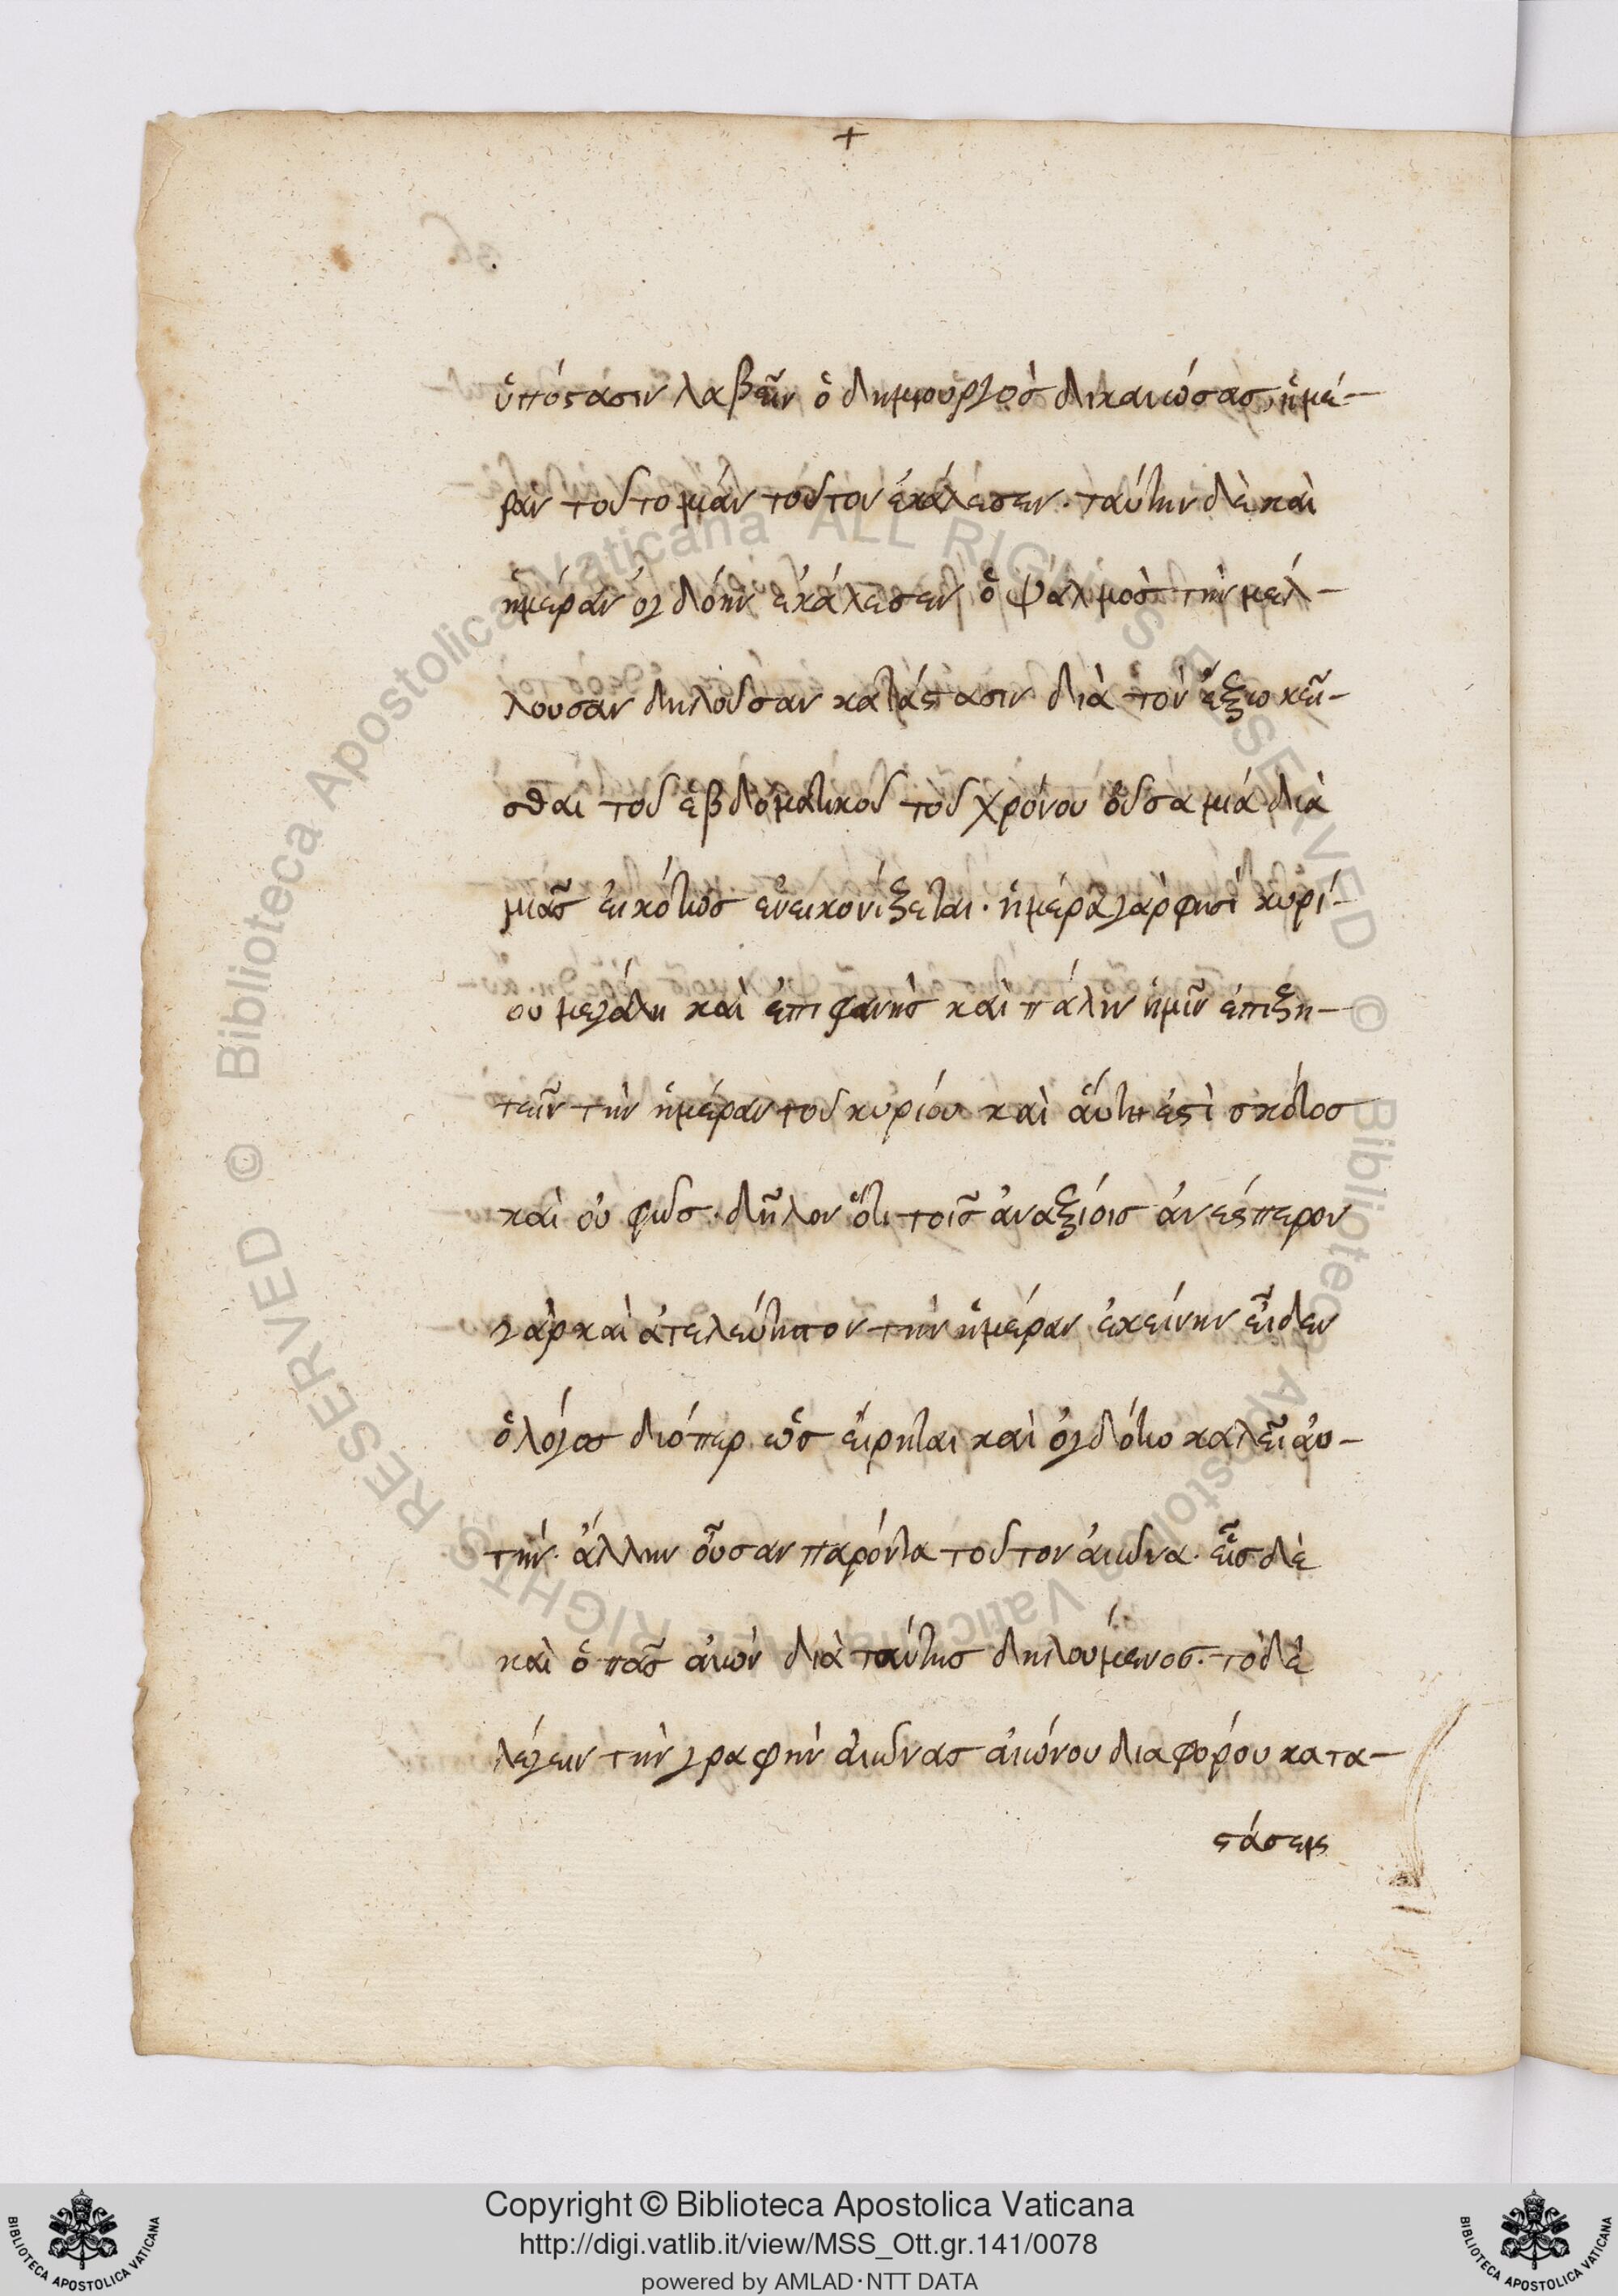 +
ὑπόστασιν λαβεῖν ὁ δημιουργὸσ δικαιώσασ, ἡμέ-
ραν τοῦτο μίαν τοῦτον ἐκάλεσεν. ταύτην δὲ καὶ
ἡμέραν ὀγδόην ἐκάλεσεν ὁ ψαλμὸσ τὴν μέλ-
λουσαν δηλοῦσαν κατάστασιν διὰ τὸν ἔξω κεῖ-
σθαι τοῦ ἑβδοματικοῦ τοῦ χρόνου οὖσα μία διὰ
μιᾶσ εἰκότωσ ἐνεικονίζεται. ἡμέρα γάρ φησὶ κυρί-
ου μεγάλη καὶ ἐπιφανὴσ καὶ πάλιν ἡμῖν ἐπιζη-
τεῖν τὴν ἡμέραν τοῦ κυρίου καὶ αὕτη ἐστὶ σκότοσ
καὶ οὐ φῶσ. δῆλον ὅτι τοῖσ ἀναξίοισ ἀνέσπερον
γὰρ καὶ ἀτελεύτητον τὴν ἡμέραν ἐκείνην εἶδεν
ὁ λόγοσ διόπερ ὡσ εἴρηται καὶ ὀγδότω καλεῖ αὐ-
τήν. ἄλλην οὖσαν παρόντα τοῦτον αἰῶνα. εἷσ δὲ
καὶ ὁ πᾶσ αἰὼν διὰ ταύτησ δηλούμενοσ. τὸ δὲ
λέγειν τὴν γραφὴν αἰῶνασ αἰώνου διαφόρου κατα-
στάσεις
Copyright © Biblioteca Apostolica Vaticana
http://digi.vatlib.it/view/MSS_Ott.gr.141/0078
powered by AMLAD·NTT DATA
BIBLIOTECA APOSTOLICA VATICANA
BIBLIOTECA APOSTOLICA VATICANA
© Biblioteca Apostolica Vaticana ALL RIGHTS RESERVED © Biblioteca Apostolica Vaticana ALL RIGHTS RESERVED